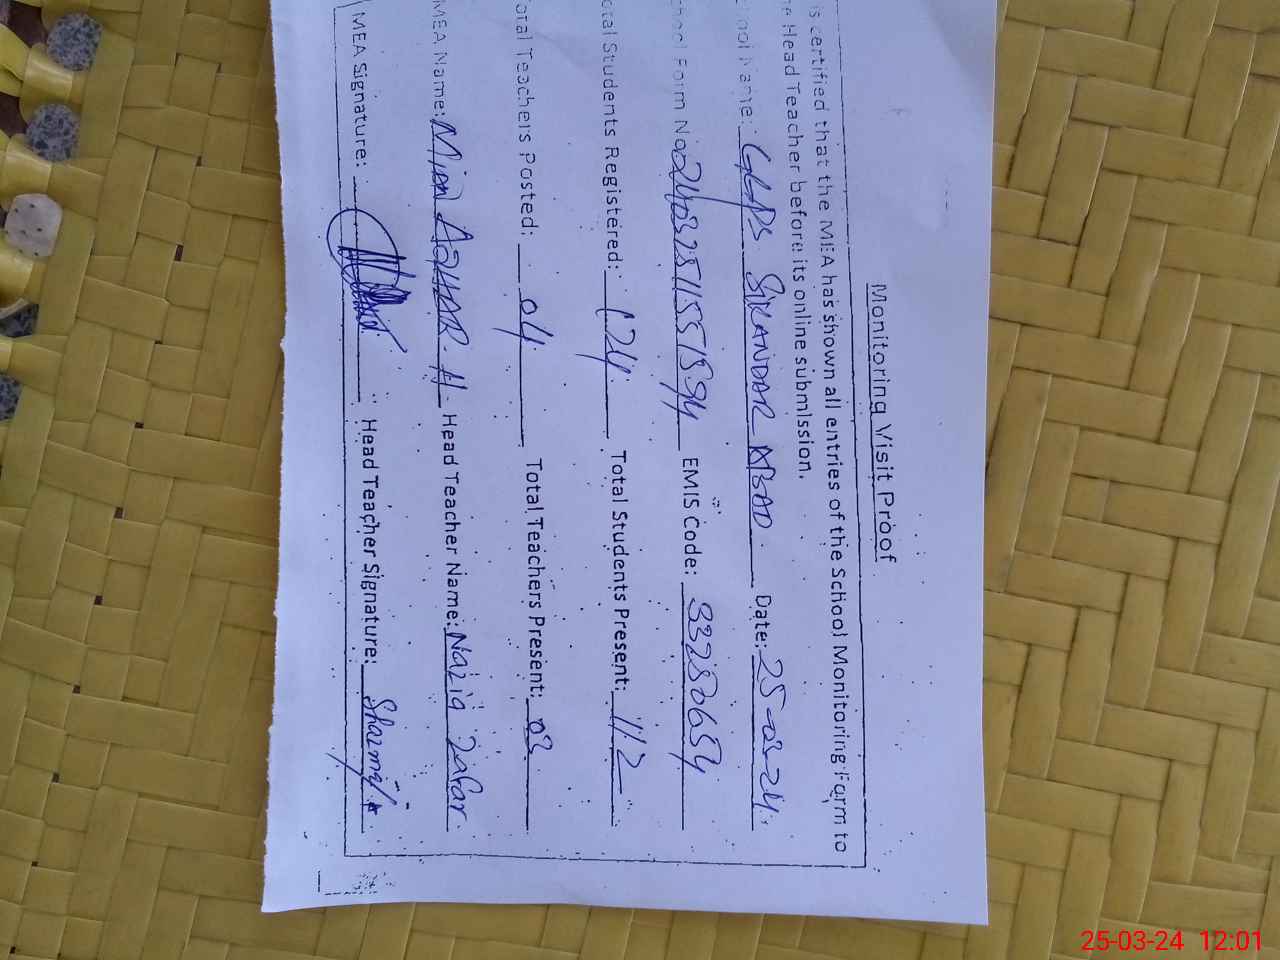 Monitoring Visit Proof
is certified that the MEA has shown all entries of the School Monitoring Form to
Head Teacher before its online submission.
Name: GGPS SIKANDAR ABAD Date: 25-03-24
Form No EMIS Code: 33280654
Students Registered: 124 Total Students Present: 112
Teachers Posted: 04 Total Teachers Present: 03
MEA Name: Mian AZHAR. H Head Teacher Name: Nazia Zafar
MEA Signature: Head Teacher Signature:
25-03-24 12:01